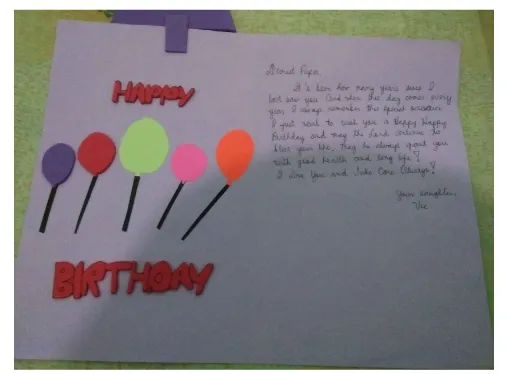 HAPPY
BIRTHDAY
Dearest Papa,
It's been how many years since I
last saw you. And when this day comes every
year, I always remember this special occasion.
I just want to wish you a Happy Happy
Birthday and may the Lord continue to
bless your life, may he always guard you
with good health and long life!
I Love You and Take Care Always!
Your daughter,
Vic